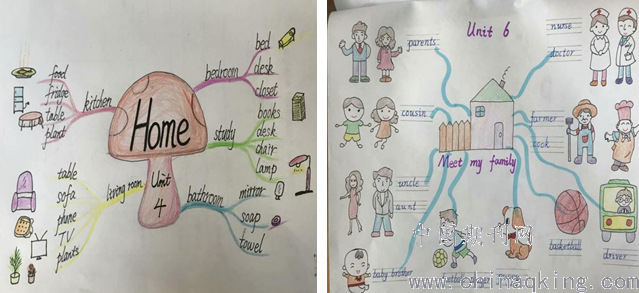 food
fridge
table
plant
kitchen
Home
Unit
4
bedroom
bed
desk
closet
study
books
desk
chair
lamp
living room
table
sofa
TV
plants
bathroom
mirror
soap
towel
Unit 6
parents
cousin
uncle
aunt
baby brother
Meet my family
nurse
doctor
farmer
cook
basketball
driver
中国期刊网
www.chinaqking.com